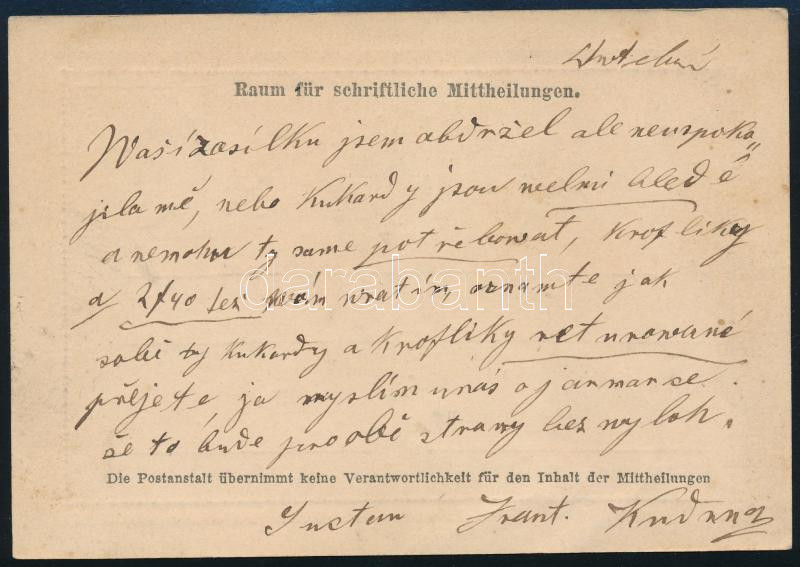 Raum für schriftliche Mittheilungen.
Waší zasílku jsem abdržel ale neuspoka„
jila mě, nebo Kukardy jsou welmi bledé
a nemohu ty same potřebowat, Krofliky
a 2/40 též wám wratím oznamte jak
sobě ty Kukardy a Krofliky returowané
přejete ja myslím unás o jarmarce
že to bude pro obě strany bez wyloh.
Die Postanstalt übernimmt keine Verantwortlichkeit für den Inhalt der Mittheilungen
Frant.
darabanth